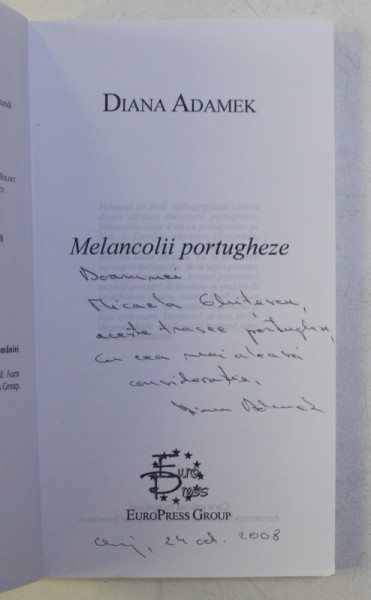 DIANA ADAMEK
Melancolii portugheze
Doamnei
Micaela Ghițescu,
aceste trasee portugheze,
cu cea mai aleasă
considerație,
Diana Adamek
Euro
Press
EUROPRESS GROUP
Cluj, 24 oct. 2008